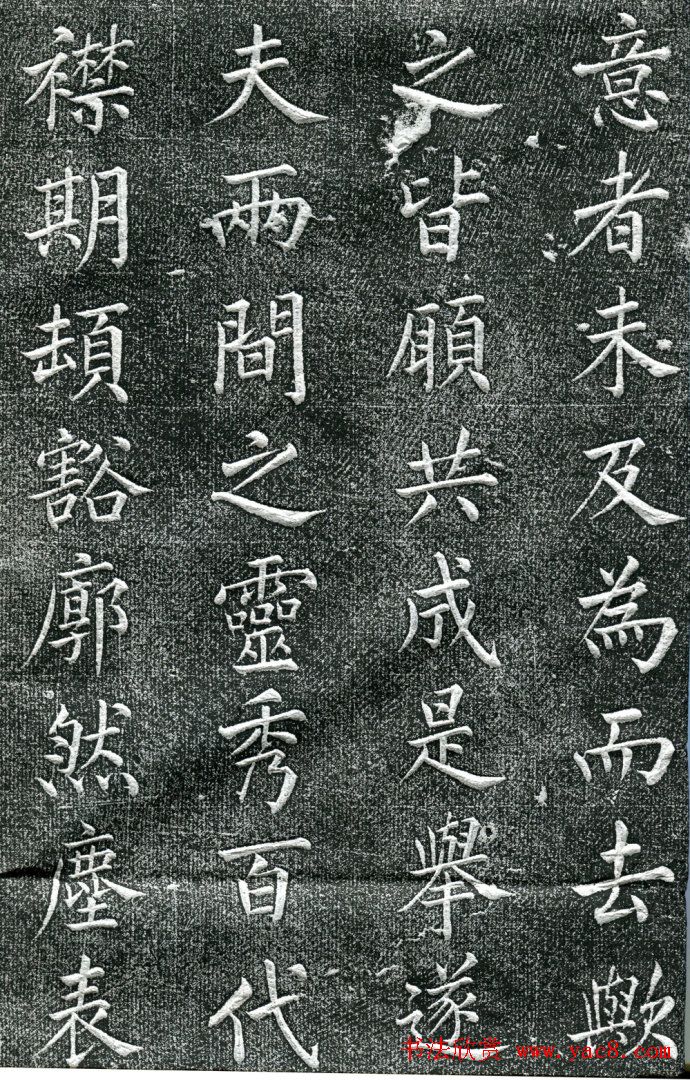 意者未及為而去歟
之皆願共成是舉遂
夫兩間之靈秀百代
襟期頓豁廓然塵表
书法欣赏 www.yac8.com